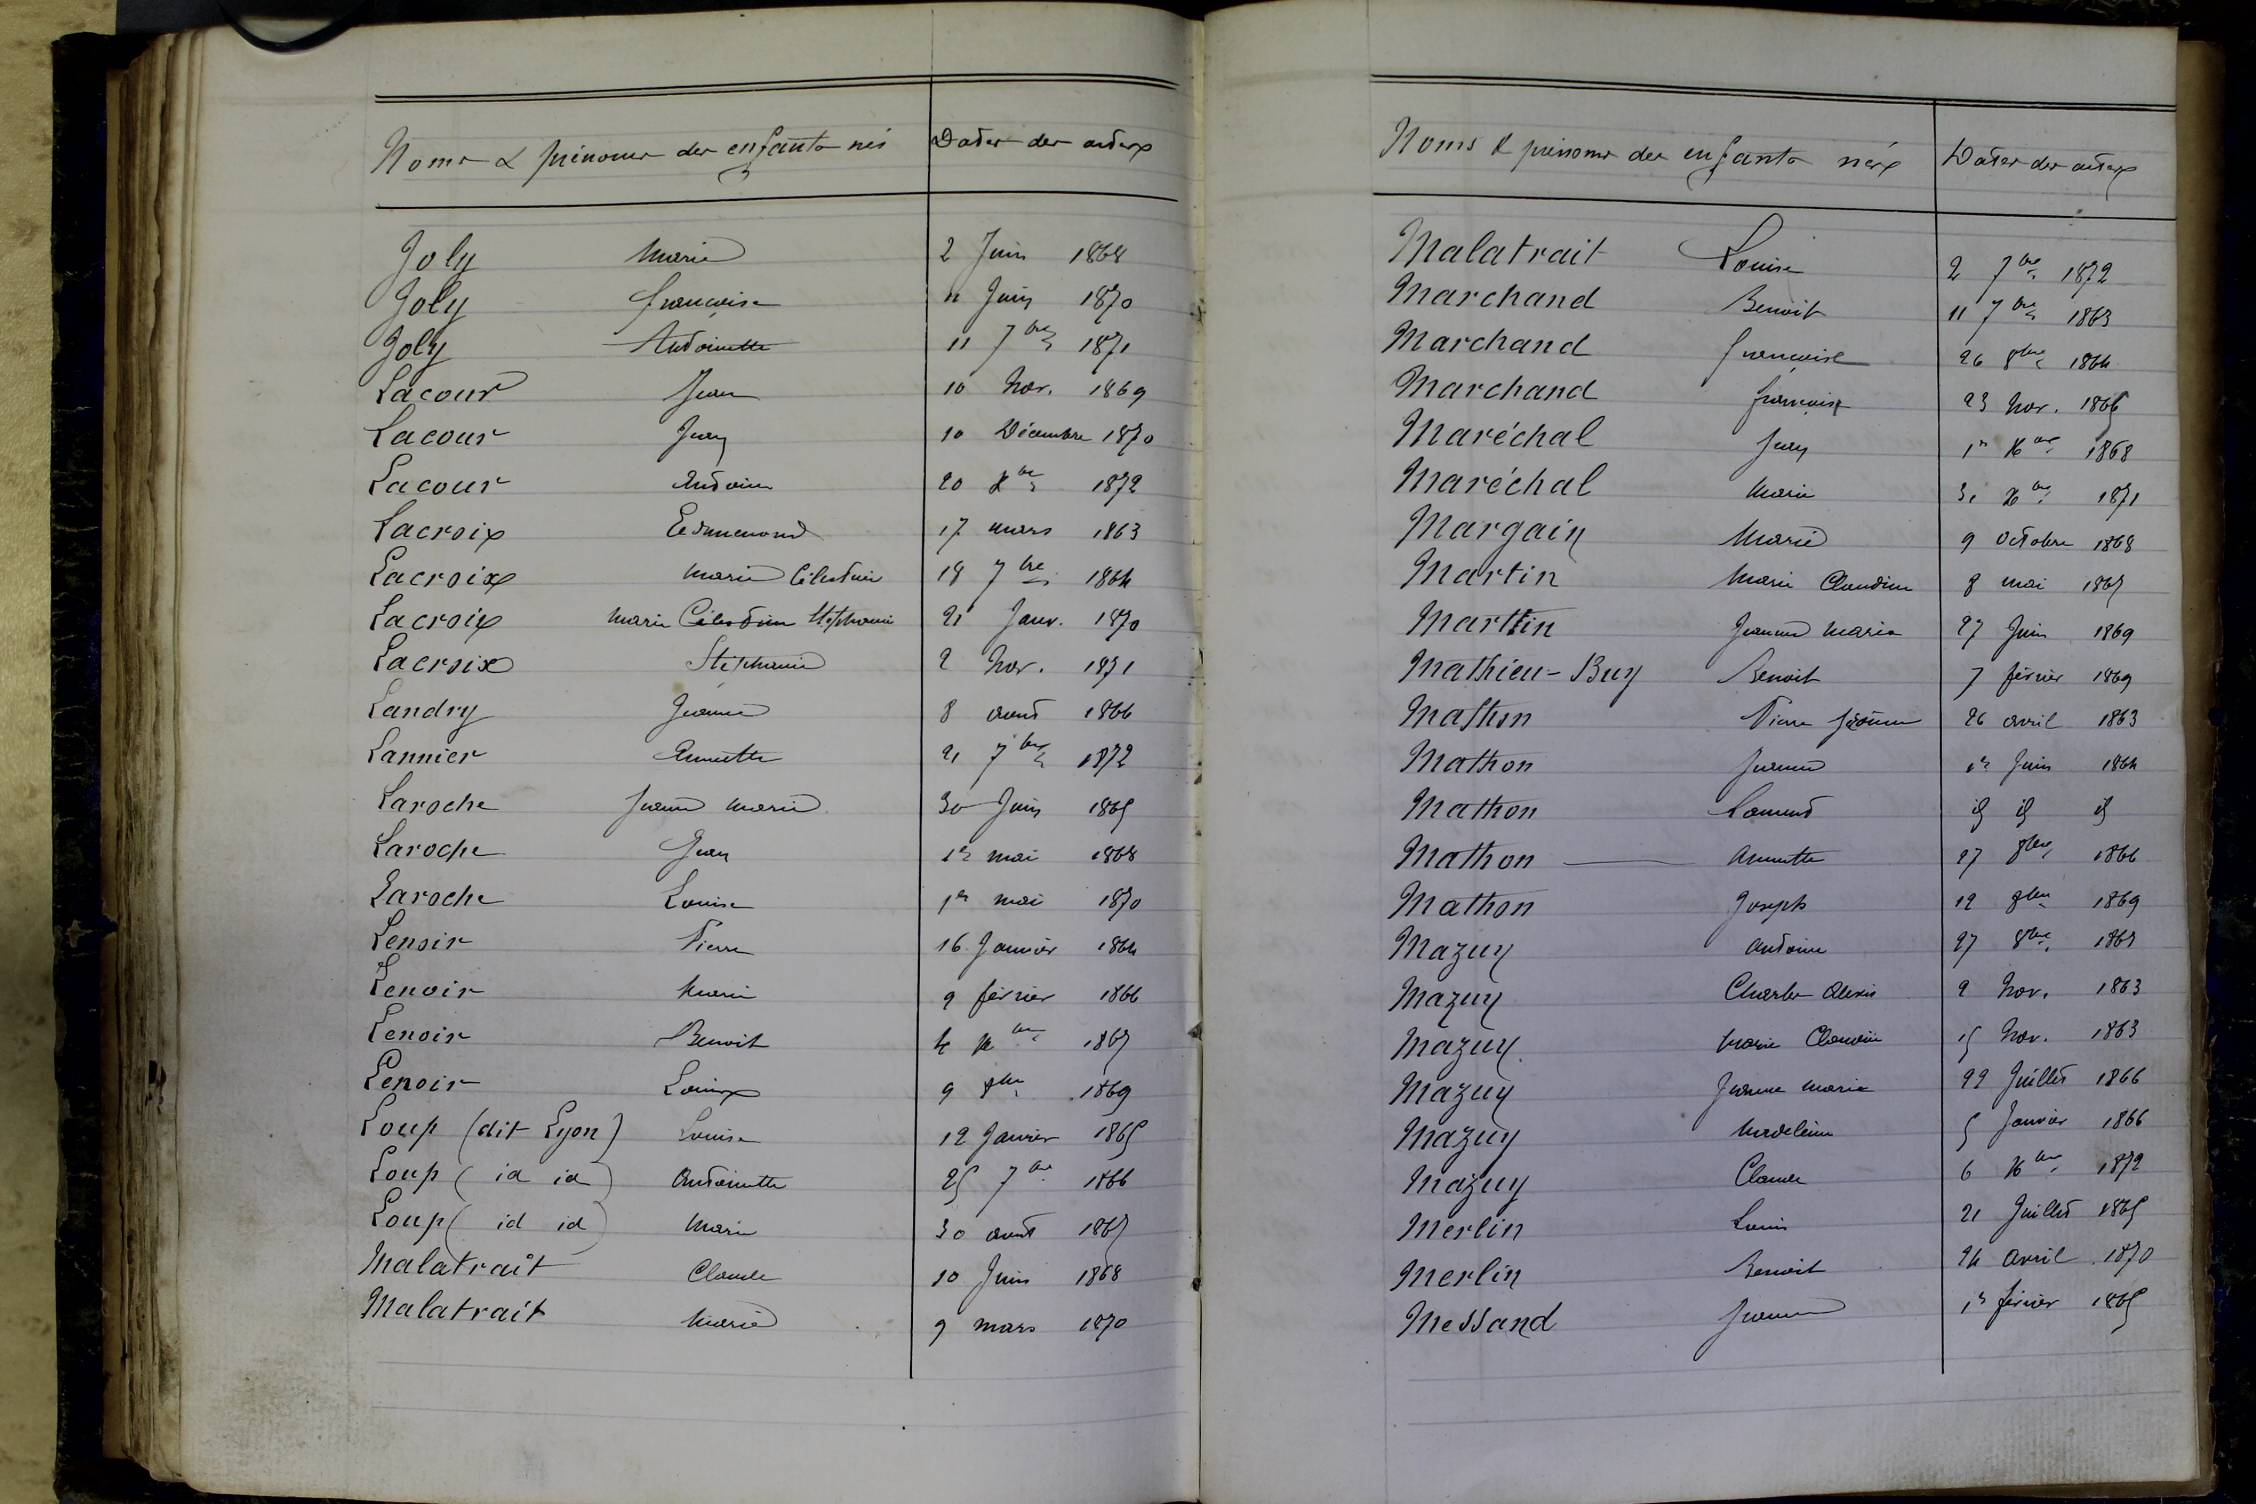 Noms & prénoms des enfants nés Dates des actes
Joly Marie 2 Juin 1868
Joly françoise 11 Juin 1870
Joly Antoinette 11 7bre 1871
Lacour Jean 10 Nov. 1869
Lacour Jean 10 Décembre 1870
Lacour Antoine 20 Xbre 1872
Lacroix Edmemond 17 mars 1863
Lacroix Marie Célestine 18 7bre 1864
Lacroix Marie Célestine Stéphanie 21 Janv. 1870
Lacroix Stéphanie 2 Nov. 1871
Landry Jeanne 8 aout 1866
Lannier Annette 21 7bre 1872
Laroche Jeanne Marie 30 Juin 1865
Laroche Jean 1er mai 1868
Laroche Louise 1er mai 1870
Lenoir Pierre 16 Janvier 1864
Lenoir Marie 9 février 1866
Lenoir Benoit 4 Xbre 1867
Lenoir Louis 9 8bre 1869
Loup (dit Lyon) Louise 12 Janvier 1865
Loup ( id id ) Antoinette 25 7bre 1866
Loup ( id id ) Marie 30 aout 1867
Malatrait Claude 10 Juin 1868
Malatrait Marie 9 mars 1870
Noms & prénoms des enfants nés Dates des actes
Malatrait Louise 2 7bre 1872
Marchand Benoit 11 7bre 1863
Marchand françoise 26 8bre 1864
Marchand 23 Nov. 1865
Maréchal Jean 1er Xbre 1868
Maréchal Marie 31 Xbre 1871
Margain Marie 9 Octobre 1868
Martin Marie Claudine 8 mai 1867
Martin Jeanne Marie 27 Juin 1869
Mathieu-Buy Benoit 7 février 1869
Mathon Pierre 26 avril 1863
Mathon Jeanne 1er Juin 1864
Mathon id id id
Mathon Annette 27 8bre 1866
Mathon Joseph 12 8bre 1869
Mazuy Antoine 27 8bre 1863
Mazuy Charles Alexis 2 Nov. 1863
Mazuy Marie Claudine 15 Nov. 1863
Mazuy Jeanne Marie 22 Juillet 1866
Mazuy Madeleine 5 Janvier 1866
Mazuy Claude 6 Xbre 1872
Merlin Louis 21 Juillet 1865
Merlin Benoit 24 avril 1870
Messand Jeanne 1er février 1865